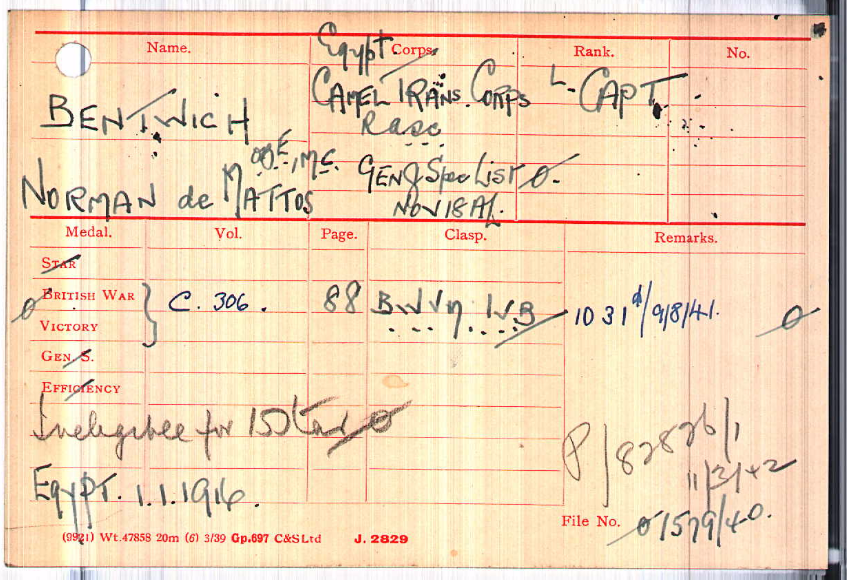 Name. Corps. Rank. No.
Egypt.
CAMEL TRANS. CORPS L-CAPT
BENTWICH
RASC
OBE, M.C.
GEN Spec List
NORMAN de MATTOS
NOV 18 AL.
Medal. Vol. Page. Clasp. Remarks.
STAR
BRITISH WAR C. 306. 88 BWVM IVB 1031 9/8/41.
VICTORY
GEN. S.
EFFICIENCY
Ineligible for 15 Star
P/82826/1
11/3/42
Egypt. 1.1.1916.
File No. 01579/40.
(9921) Wt.47858 20m (6) 3/39 Gp.697 C&S Ltd J. 2829